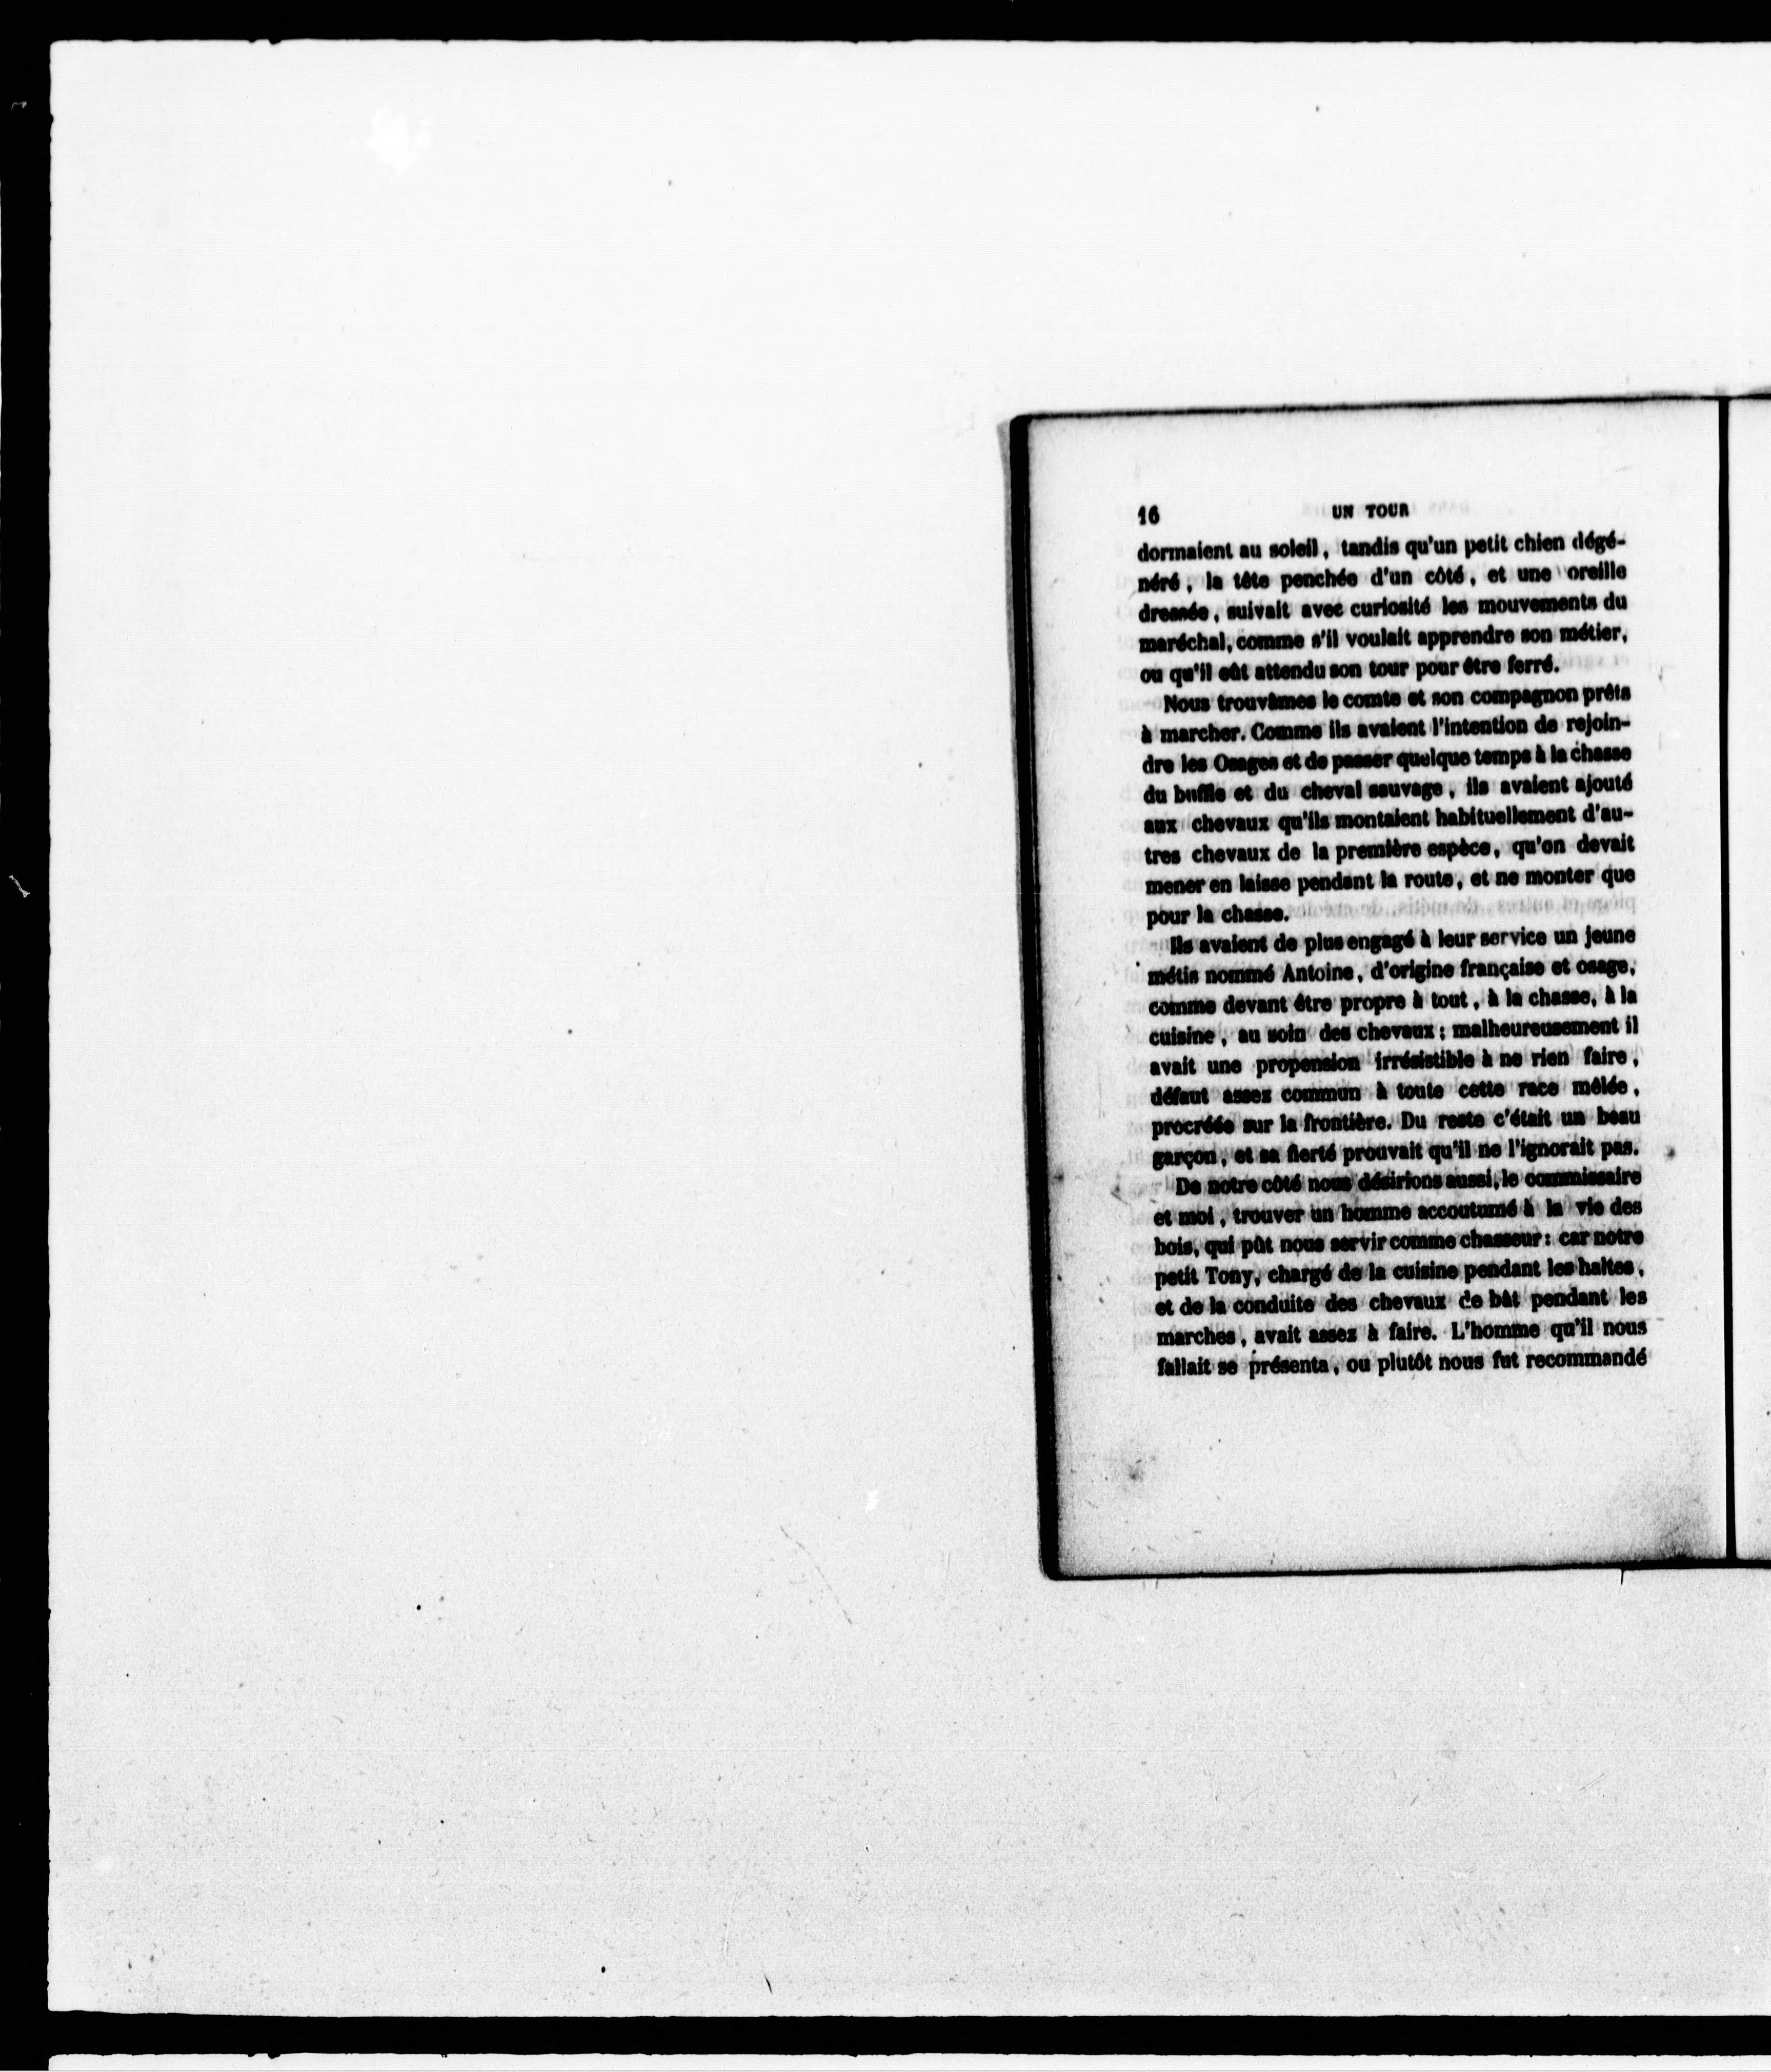 16 UN TOUR
dormaient au soleil, tandis qu'un petit chien dégé-
néré, la tête penchée d'un côté, et une oreille
dressée, suivait avec curiosité les mouvements du
maréchal, comme s'il voulait apprendre son métier,
ou qu'il eût attendu son tour pour être ferré.
Nous trouvâmes le comte et son compagnon prêts
à marcher. Comme ils avaient l'intention de rejoin-
dre les Osages et de passer quelque temps à la chasse
du buffle et du cheval sauvage, ils avaient ajouté
aux chevaux qu'ils montaient habituellement d'au-
tres chevaux de la première espèce, qu'on devait
mener en laisse pendant la route, et ne monter que
pour la chasse.
Ils avaient de plus engagé à leur service un jeune
métis nommé Antoine, d'origine française et osage,
comme devant être propre à tout, à la chasse, à la
cuisine, au soin des chevaux; malheureusement il
avait une propension irrésistible à ne rien faire,
défaut assez commun à toute cette race mêlée,
procréée sur la frontière. Du reste c'était un beau
garçon, et sa fierté prouvait qu'il ne l'ignorait pas.
De notre côté nous désirions aussi, le commissaire
et moi, trouver un homme accoutumé à la vie des
bois, qui pût nous servir comme chasseur: car notre
petit Tony, chargé de la cuisine pendant les haltes,
et de la conduite des chevaux de bât pendant les
marches, avait assez à faire. L'homme qu'il nous
fallait se présenta, ou plutôt nous fut recommandé